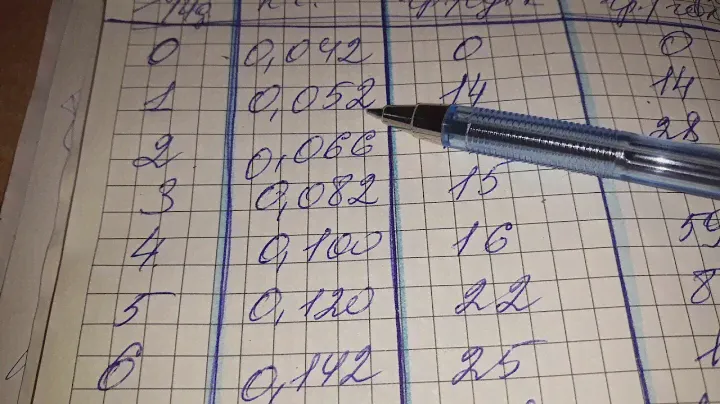 0 0,042 0 0
1 0,052 14 14
2 0,066 28
3 0,082 15
4 0,100 16 59
5 0,120 22 8
6 0,142 25